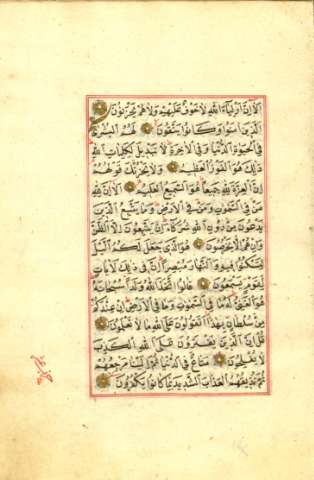 اَلَا اِنَّ اَوْلِيَاءَ اللهِ لَا خَوْفٌ عَلَيْهِمْ وَلَا هُمْ يَحْزَنُونَ
اَلَّذِينَ اٰمَنُوا وَكَانُوا يَتَّقُونَ لَهُمُ الْبُشْرٰى
فِي الْحَيٰوةِ الدُّنْيَا وَفِي الْاٰخِرَةِ لَا تَبْدِيلَ لِكَلِمَاتِ اللهِ
ذٰلِكَ هُوَ الْفَوْزُ الْعَظِيمُ وَلَا يَحْزُنْكَ قَوْلُهُمْ
اِنَّ الْعِزَّةَ لِلّٰهِ جَمِيعًا هُوَ السَّمِيعُ الْعَلِيمُ اَلَا اِنَّ لِلّٰهِ
مَنْ فِي السَّمٰوَاتِ وَمَنْ فِي الْاَرْضِ وَمَا يَتَّبِعُ الَّذِينَ
يَدْعُونَ مِنْ دُونِ اللهِ شُرَكَاءَ اِنْ يَتَّبِعُونَ اِلَّا الظَّنَّ
وَاِنْ هُمْ اِلَّا يَخْرُصُونَ هُوَ الَّذِي جَعَلَ لَكُمُ الَّيْلَ
لِتَسْكُنُوا فِيهِ وَالنَّهَارَ مُبْصِرًا اِنَّ فِي ذٰلِكَ لَاٰيَاتٍ
لِقَوْمٍ يَسْمَعُونَ قَالُوا اتَّخَذَ اللهُ وَلَدًا سُبْحَانَهُ
هُوَ الْغَنِيُّ لَهُ مَا فِي السَّمٰوَاتِ وَمَا فِي الْاَرْضِ اِنْ عِنْدَكُمْ
مِنْ سُلْطَانٍ بِهٰذَا اَتَقُولُونَ عَلَى اللهِ مَا لَا تَعْلَمُونَ
قُلْ اِنَّ الَّذِينَ يَفْتَرُونَ عَلَى اللهِ الْكَذِبَ
لَا يُفْلِحُونَ مَتَاعٌ فِي الدُّنْيَا ثُمَّ اِلَيْنَا مَرْجِعُهُمْ
ثُمَّ نُذِيقُهُمُ الْعَذَابَ الشَّدِيدَ بِمَا كَانُوا يَكْفُرُونَ